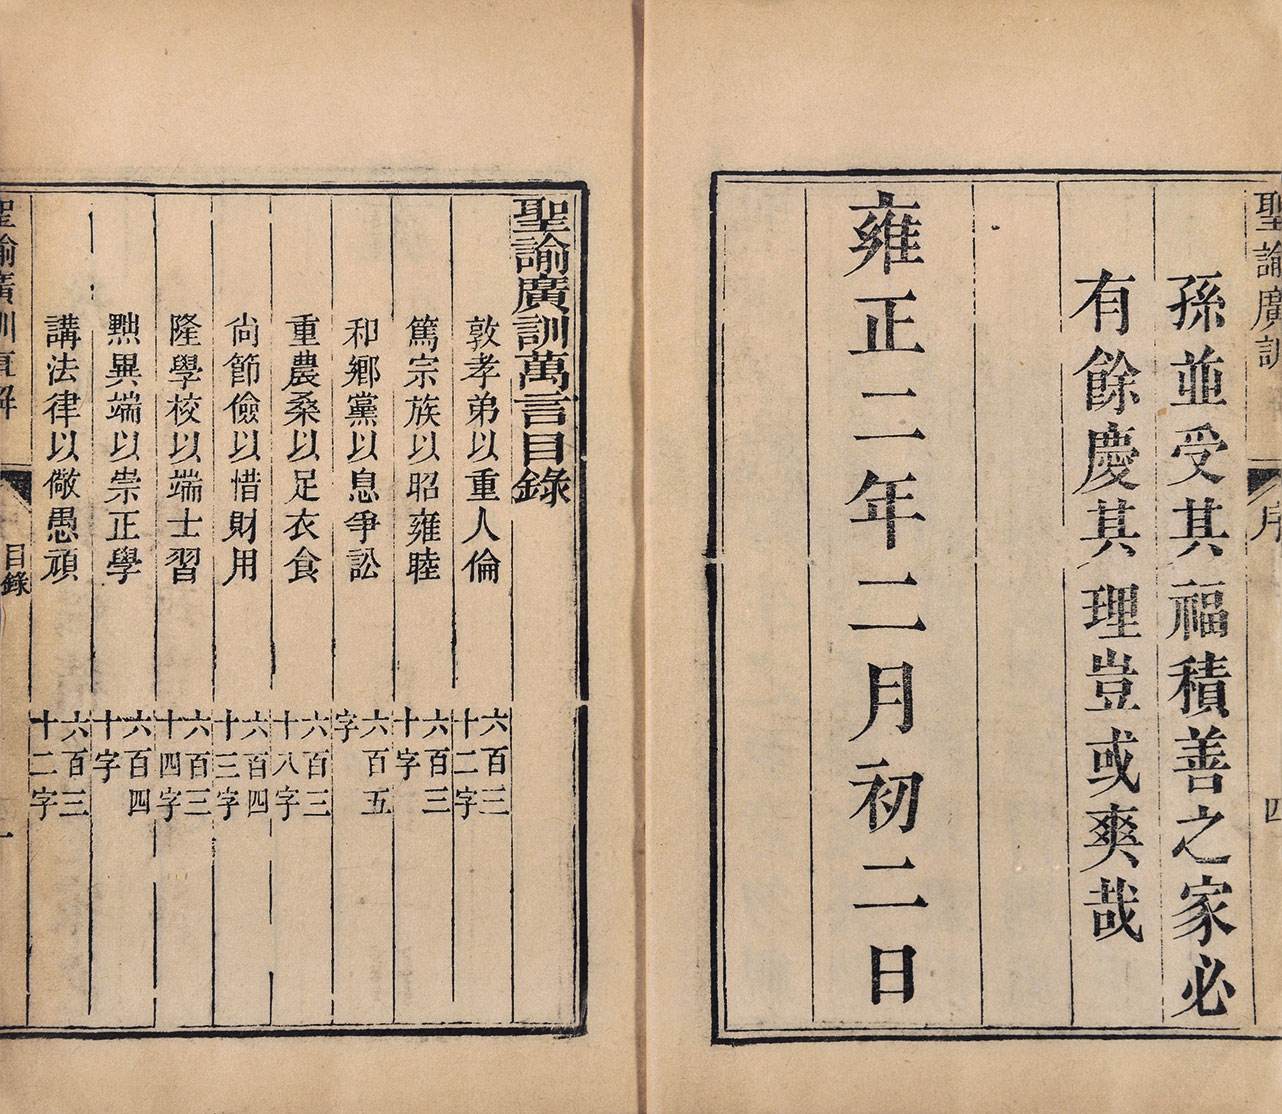 聖諭廣訓
序
四
孫並受其福積善之家必
有餘慶其理豈或爽哉
雍正二年二月初二日
聖諭廣訓萬言目錄
敦孝弟以重人倫 六百三十二字
篤宗族以昭雍睦 六百三十字
和鄉黨以息爭訟 六百五字
重農桑以足衣食 六百三十八字
尚節儉以惜財用 六百四十三字
隆學校以端士習 六百三十四字
黜異端以崇正學 六百四十字
講法律以儆愚頑 六百三十二字
聖諭廣訓直解
目錄
一